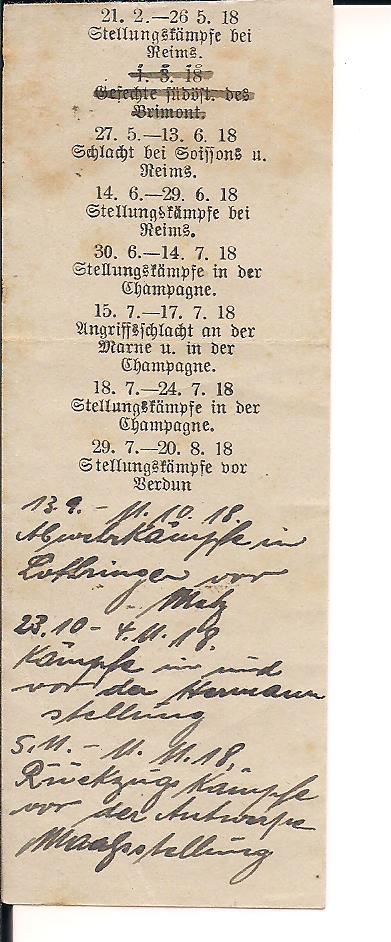 21. 2.—26 5. 18
Stellungskämpfe bei
Reims.
1. 3. 18
Gefechte südöstl. des
Brimont.
27. 5.—13. 6. 18
Schlacht bei Soissons u.
Reims.
14. 6.—29. 6. 18
Stellungskämpfe bei
Reims.
30. 6.—14. 7. 18
Stellungskämpfe in der
Champagne.
15. 7.—17. 7. 18
Angriffsschlacht an der
Marne u. in der
Champagne.
18. 7.—24. 7. 18
Stellungskämpfe in der
Champagne.
29. 7.—20. 8. 18
Stellungskämpfe vor
Verdun
13.9. - 11. 10. 18.
Abwehrkämpfe in
Lothringen vor
Metz
23.10 - 4. 11. 18.
Kämpfe in und
vor der Hermann
stellung
5. 11. - 11. 11. 18.
Rückzugskämpfe
vor der Antwerpen
Maasstellung